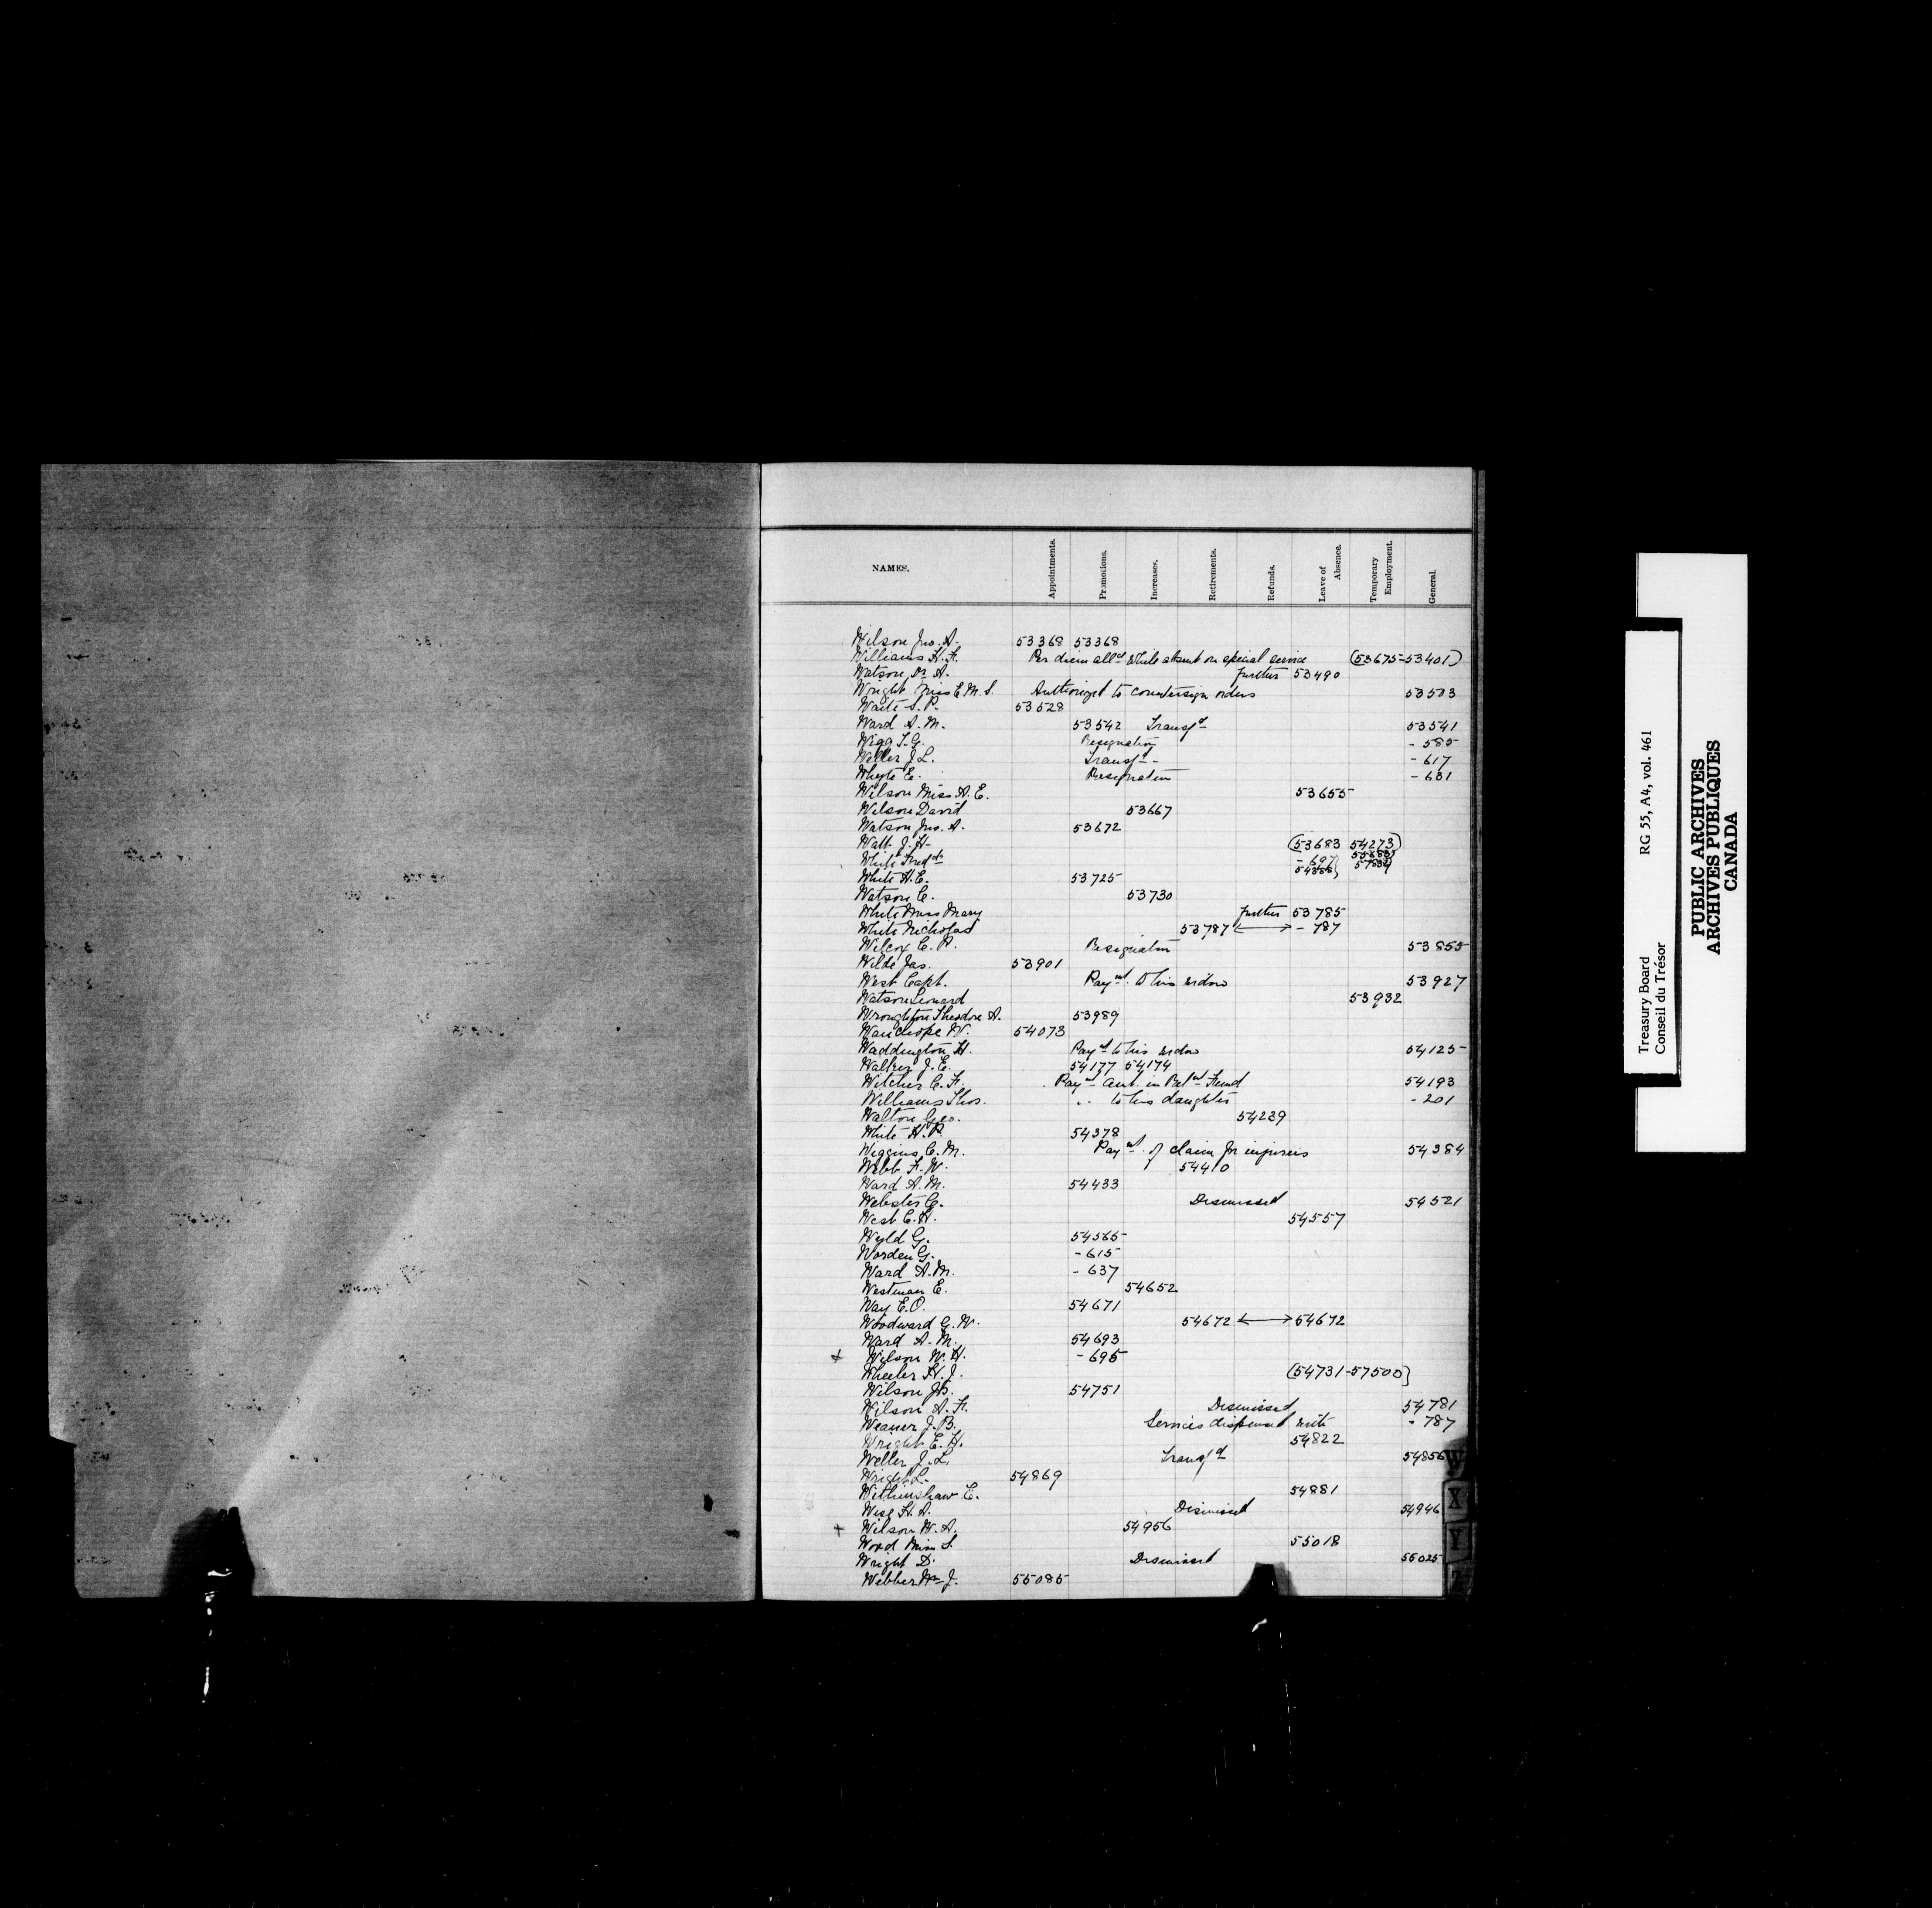 NAMES. Appointments. Promotions. Increases. Retirements. Refunds. Leave of Absence. Temporary Employment. General.
Wilson Jno. A. 53368 53368
Williams H. H. Per diem allce while absent on special service (53675-53401)
Watson Dr A. further 53490
Wright Miss E. M. S. Authorized to countersign orders 53503
Waite S. P. 53528
Ward A. M. 53542 Transfd 53541
Wigg T. G. Resignation - 585
Weller J L. Transfd - 617
Whyte E. Resignation - 631
Wilson Miss A. E. 53655
Wilson David 53667
Watson Jno. A. 53672
Watt J. H. (53683 54273)
White Fredk - 697
White H. E. 53725
Watson C. 53730
White Miss Mary further 53785
White Nicholas 53787 ⟷ - 787
Wilcox C. P. Resignation 53855
Wilde Jas. 53901
West Capt. Paymt. to his widow 53927
Watson Leonard 53932
Wroughton Theodore A. 53989
Wauchope W. 54073
Waddington H. Payt to his widow 54125
Walker J. E. 54177 54174
Witcher C. F. Paymt amt. in Retmt Fund 54193
Williams Thos. " to his daughter - 201
Walton Geo. 54239
White H. P. 54378
Wiggins C. M. Paymt. of claim for injuries 54384
Webb F. W. 54410
Ward A. M. 54433
Webster G. Dismissed 54521
West C. H. 54557
Wyld G. 54565
Worden G. - 615
Ward A. M. - 637
Westman E. 54652
Way E. O. 54671
Woodward G. W. 54672 ⟷ 54672
Ward A. M. 54693
+ Wilson W. H. - 695
Wheeler H. J. (54731-57500)
Wilson Js. 54751
Wilson A. F. Dismissed 54781
Weaver J. B. Services dispensed with - 787
Wright E. H. 54822
Weller J. L. Transfd 54856
Wright L. 54869
Withinshaw E. 54881
Wise H. A. Dismissed 54946
+ Wilson W. A. 54956
Wood Miss S. 55018
Wright D. Dismissed 55025
Webber Wm J. 55085
W
X
Y
Treasury Board RG 55, A4, vol. 461
Conseil du Trésor
PUBLIC ARCHIVES
ARCHIVES PUBLIQUES
CANADA